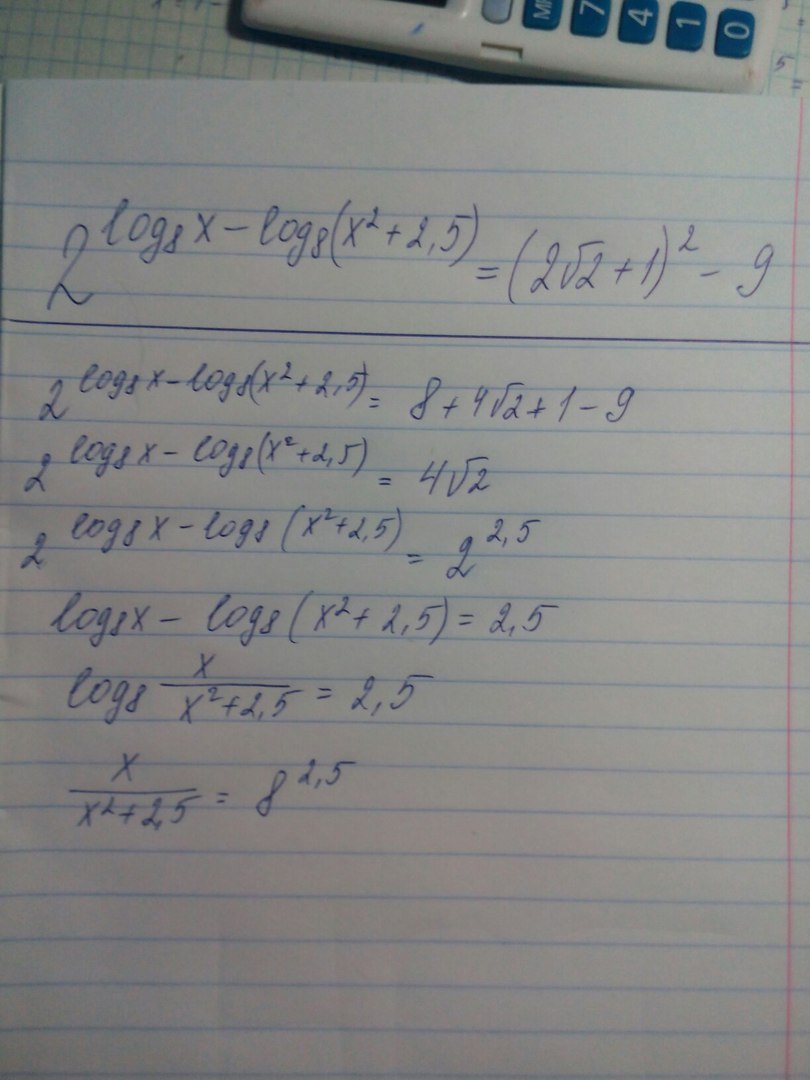 7 4 1 0
5
2^(log₈x − log₈(x² + 2,5)) = (2√2 + 1)² − 9
2^(log₈x − log₈(x² + 2,5)) = 8 + 4√2 + 1 − 9
2^(log₈x − log₈(x² + 2,5)) = 4√2
2^(log₈x − log₈(x² + 2,5)) = 2^(2,5)
log₈x − log₈(x² + 2,5) = 2,5
log₈ x/(x² + 2,5) = 2,5
x/(x² + 2,5) = 8^(2,5)